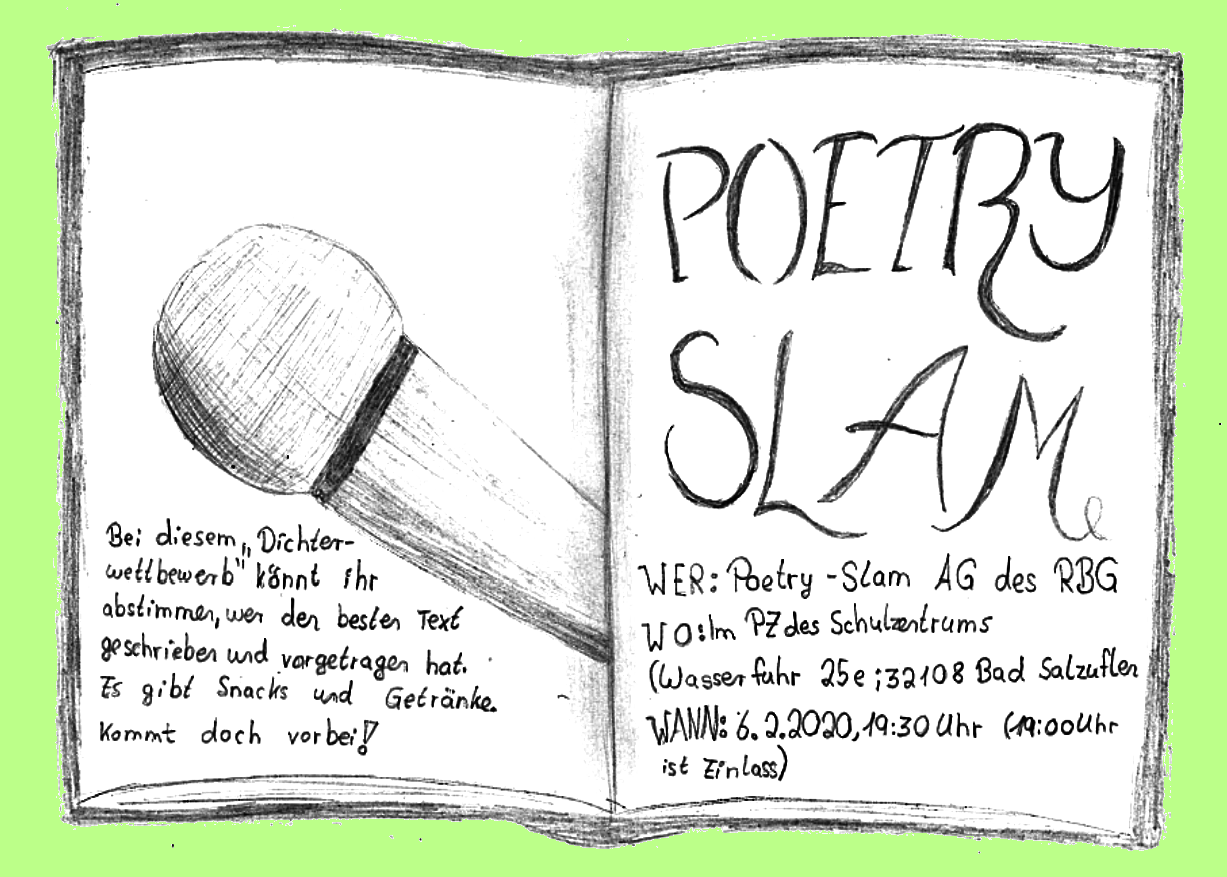 Bei diesem „Dichter-
wettbewerb" könnt ihr
abstimmen, wer den besten Text
geschrieben und vorgetragen hat.
Es gibt Snacks und Getränke.
Kommt doch vorbei!
POETRY
SLAM
WER: Poetry-Slam AG des RBG
WO: Im PZ des Schulzentrums
(Wasserfuhr 25e; 32108 Bad Salzuflen
WANN: 6.2.2020, 19:30 Uhr (19:00 Uhr
ist Einlass)